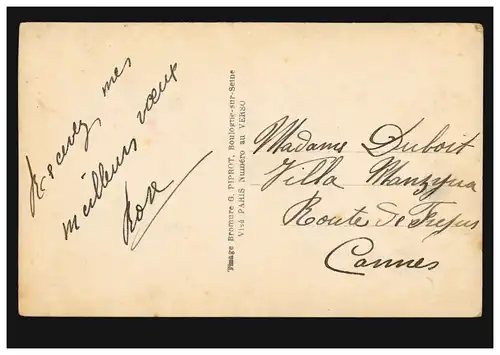 Recevez mes
meilleurs vœux
Rose
Tirage Bromure G. PIPROT, Boulogne-sur-Seine
Visé PARIS Numéro au VERSO
Madame Duboit
Villa Manzyna
Route de Frejus
Cannes